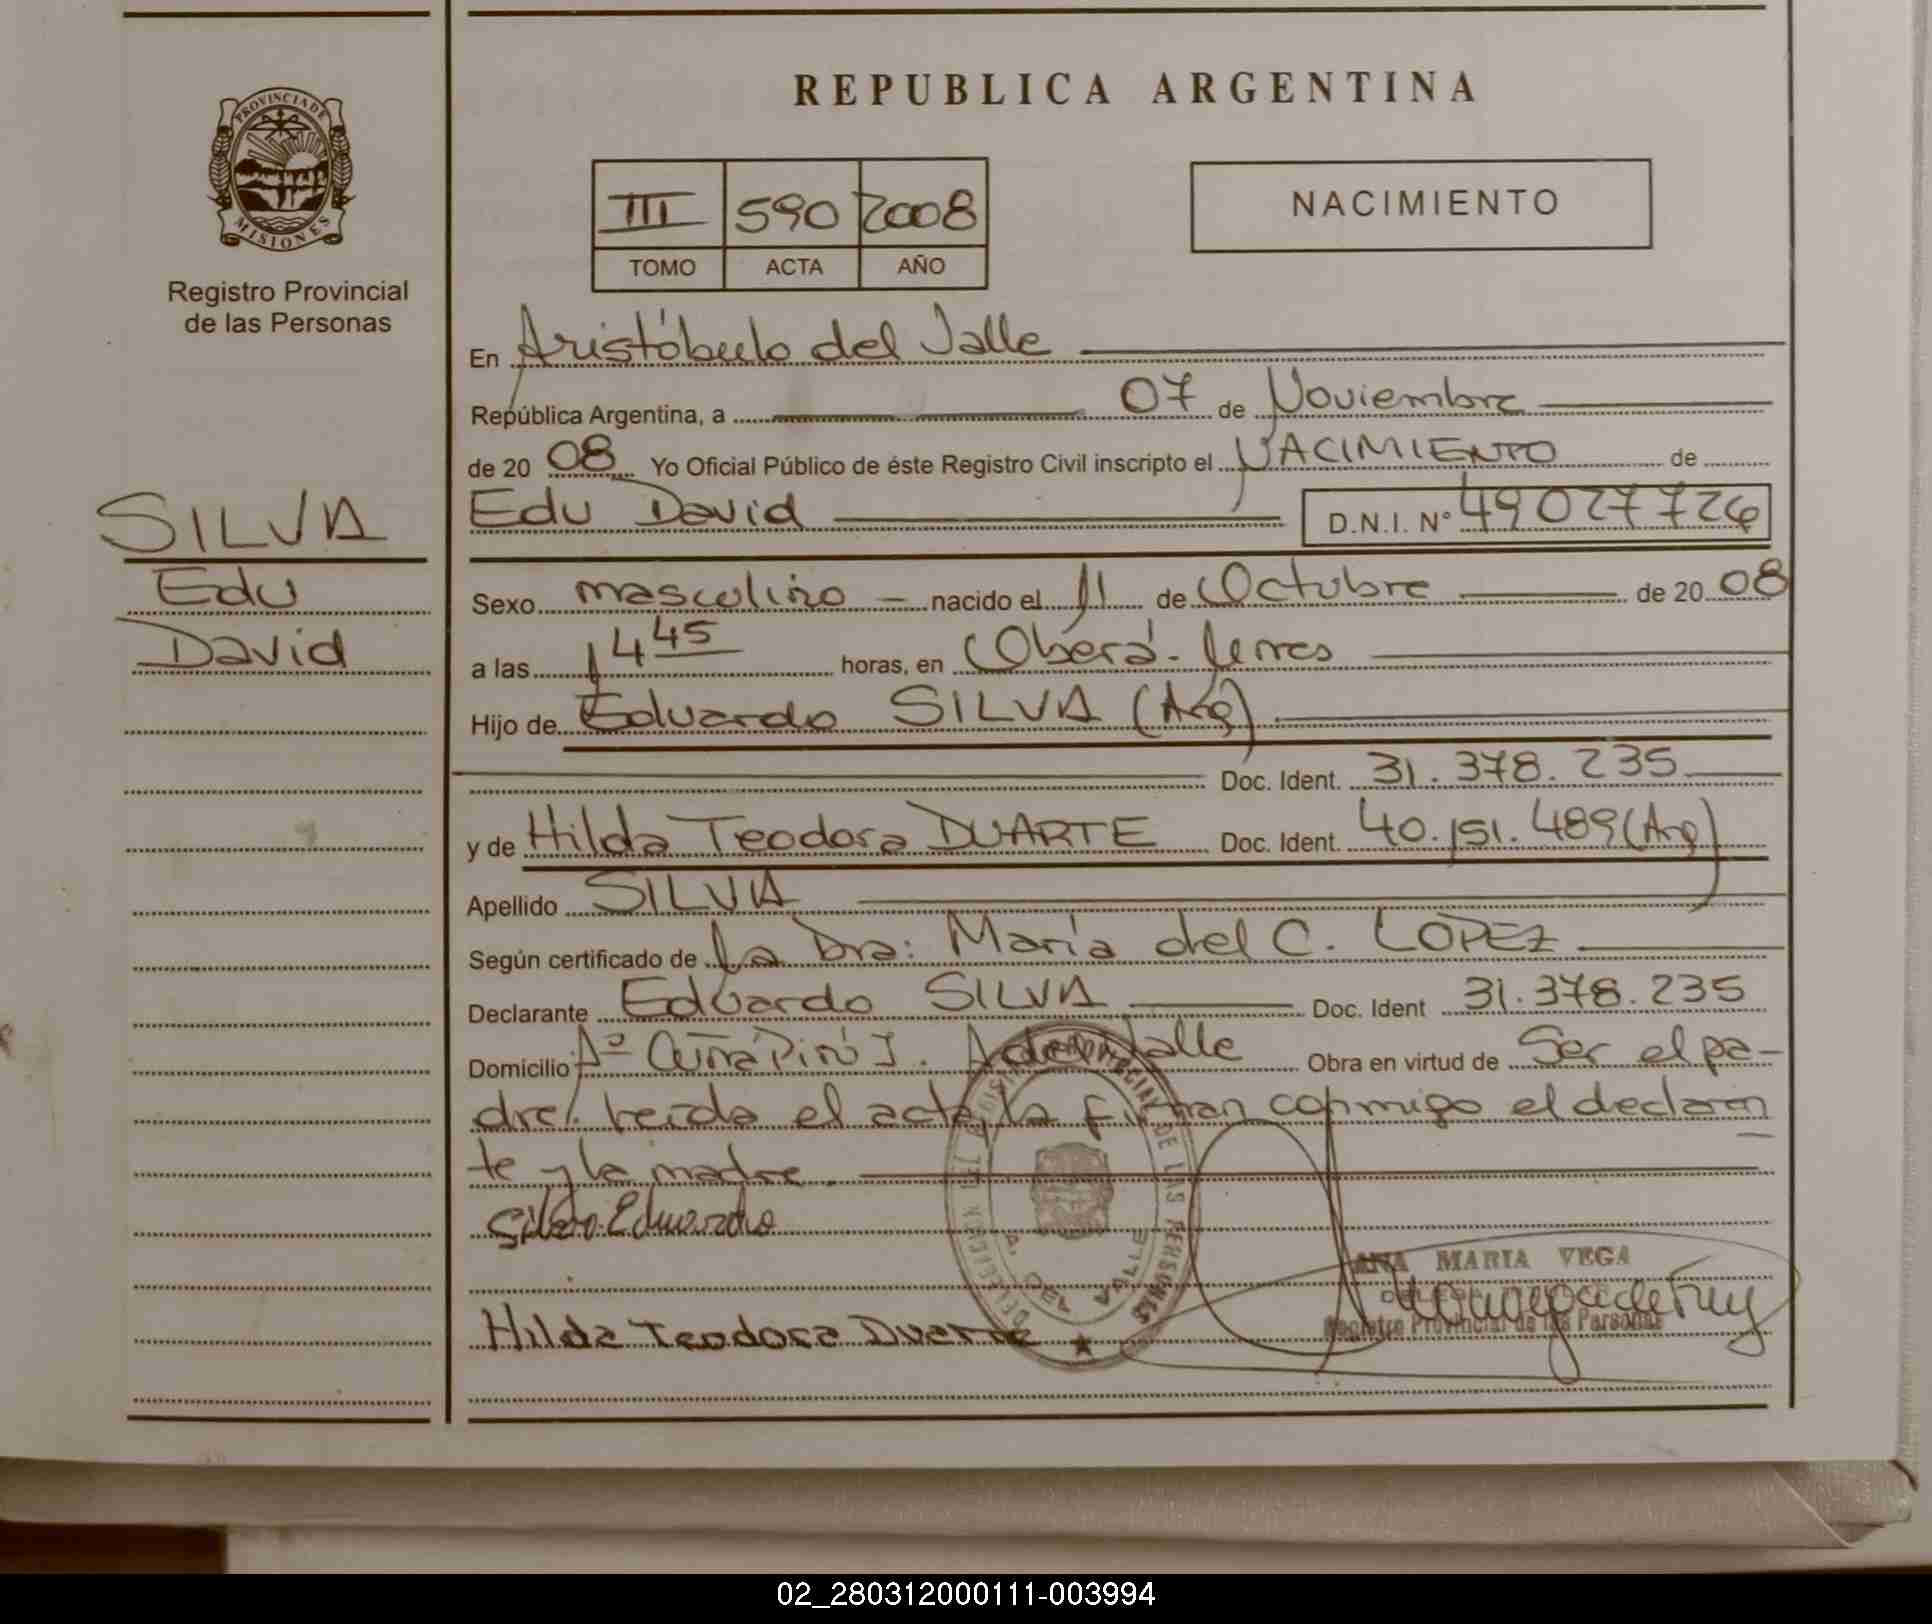 REPUBLICA ARGENTINA
PROVINCIA DE
MISIONES
Registro Provincial
de las Personas
III 590 2008
TOMO ACTA AÑO
NACIMIENTO
En Aristóbulo del Valle
República Argentina, a 07 de Noviembre
de 20 08 Yo Oficial Público de éste Registro Civil inscripto el NACIMIENTO de
Edu David D.N.I. Nº 49027726
SILVA
Edu
David
Sexo masculino - nacido el 11 de Octubre de 20 08
a las 14 45 horas, en Oberá.
Hijo de Eduardo SILVA (Arg)
Doc. Ident. 31.378.235
y de Hilda Teodora DUARTE Doc. Ident. 40.151.489 (Arg)
Apellido SILVA
Según certificado de la Dra: María del C. LOPEZ
Declarante Eduardo SILVA Doc. Ident 31.378.235
Domicilio Aº Cuñá Pirú I. A del Valle Obra en virtud de Ser el pa-
dre/. leida el acta, la firman conmigo el declaran
te y la madre.
Silva Eduardo
ANA MARIA VEGA
Registro Provincial de las Personas
Hilda Teodora Duarte
02_280312000111-003994